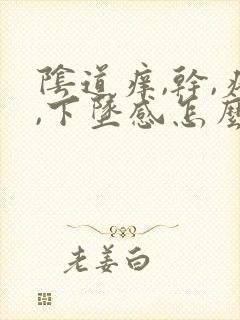 陰道痒,幹,
,下墜感怎麼
老姜白